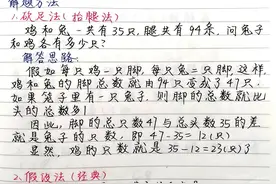 解题方法
1.砍足法(抬腿法)
鸡和兔一共有35只,腿共有94条,问兔子
和鸡各有多少只?
解答思路:
假如每只鸡一只脚,每只兔二只脚,这样,
鸡和兔的脚总数就由94只变成了47只,
如果笼子里有一只兔子,则脚的总数就比
头的总数多1
因此,脚的总只数47与总头数35的差
就是兔子的只数,即47-35=12(只)
显然,鸡的只数就是35-12=23(只)了
2.假设法(经典)